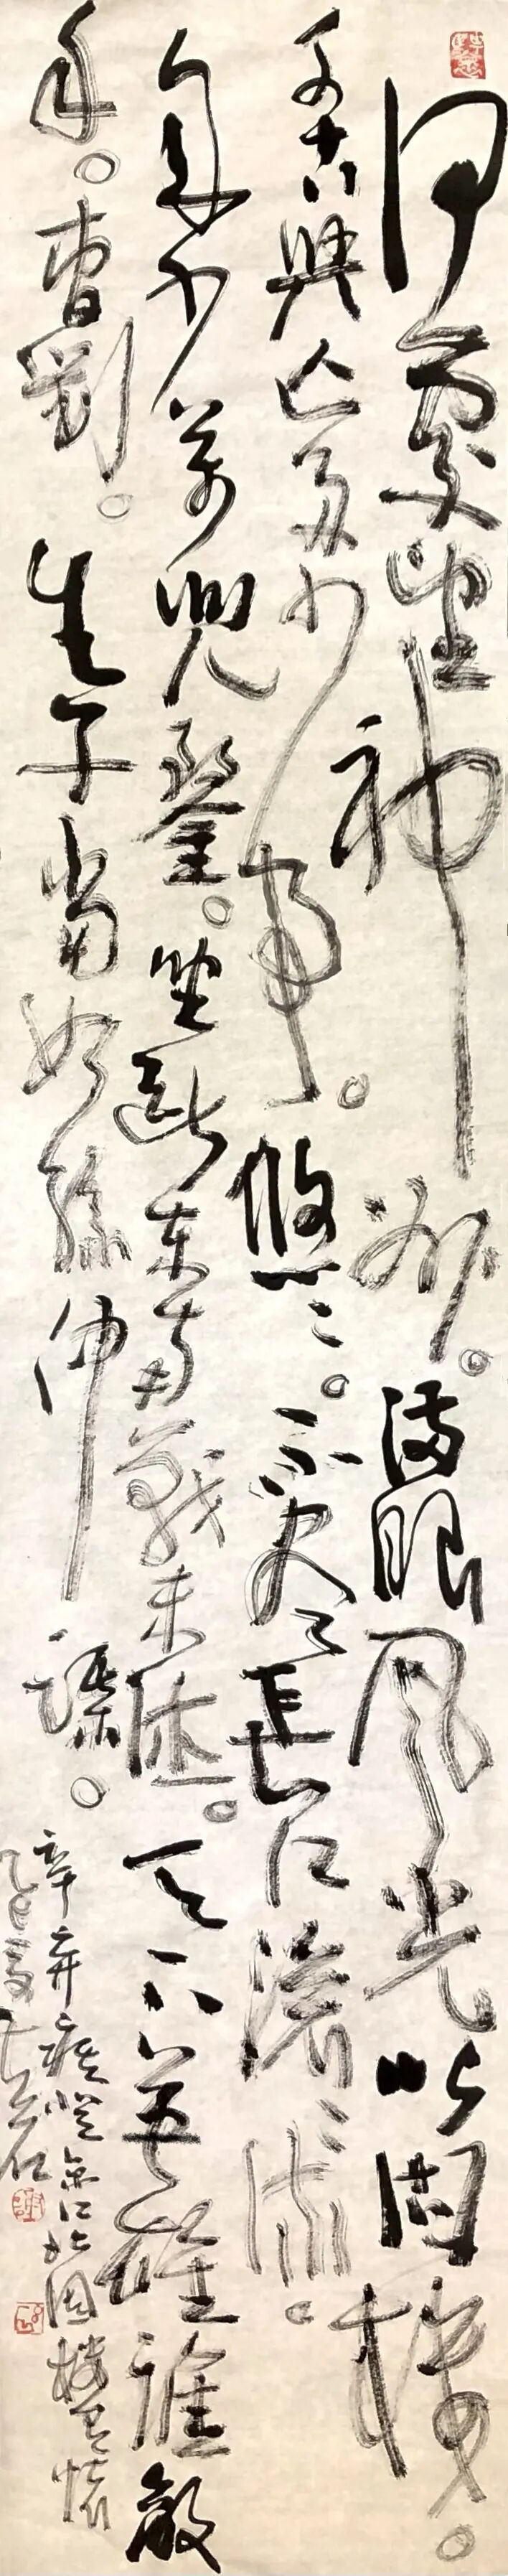 何處望神州。滿眼風光北固樓。
千古興亡多少事。悠〻。不尽長江滾〻流。
年少萬兜鍪。坐斷東南戰未休。天下英雄誰敵
手。曹劉。生子當如孫仲謀。
辛弃疾登京口北固樓有懷